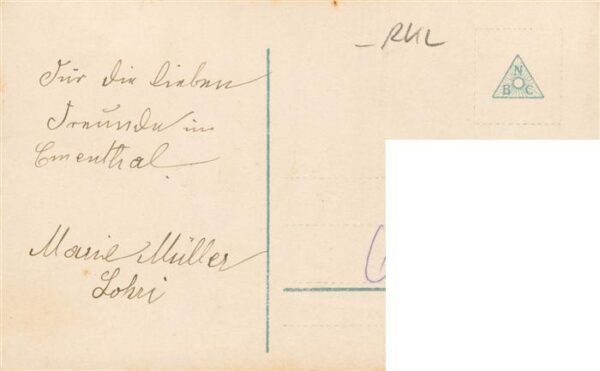 Für die lieben
Freunde im
Ementhal.
Marie Müller
Lohri
RKL
N
B C